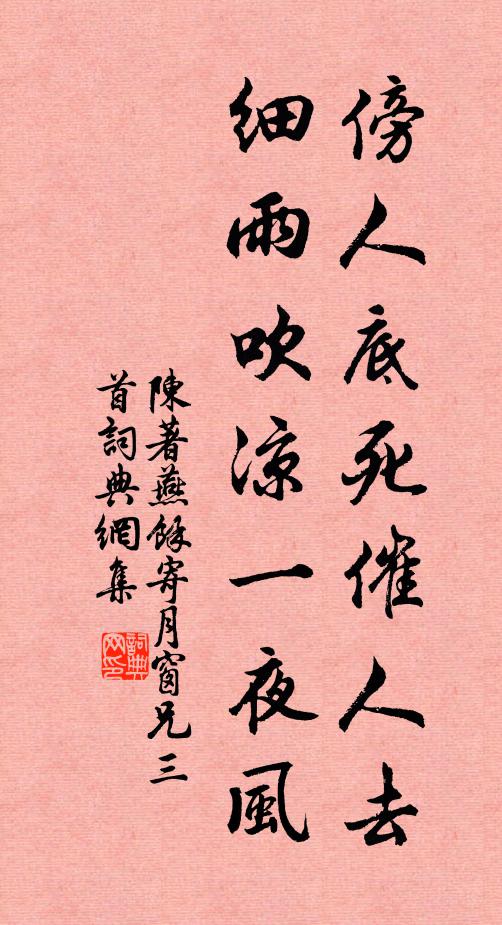 傍人底死催人去
細雨吹涼一夜風
陳著燕餘寄月窗兄三
首詞典網集
詞典
网印